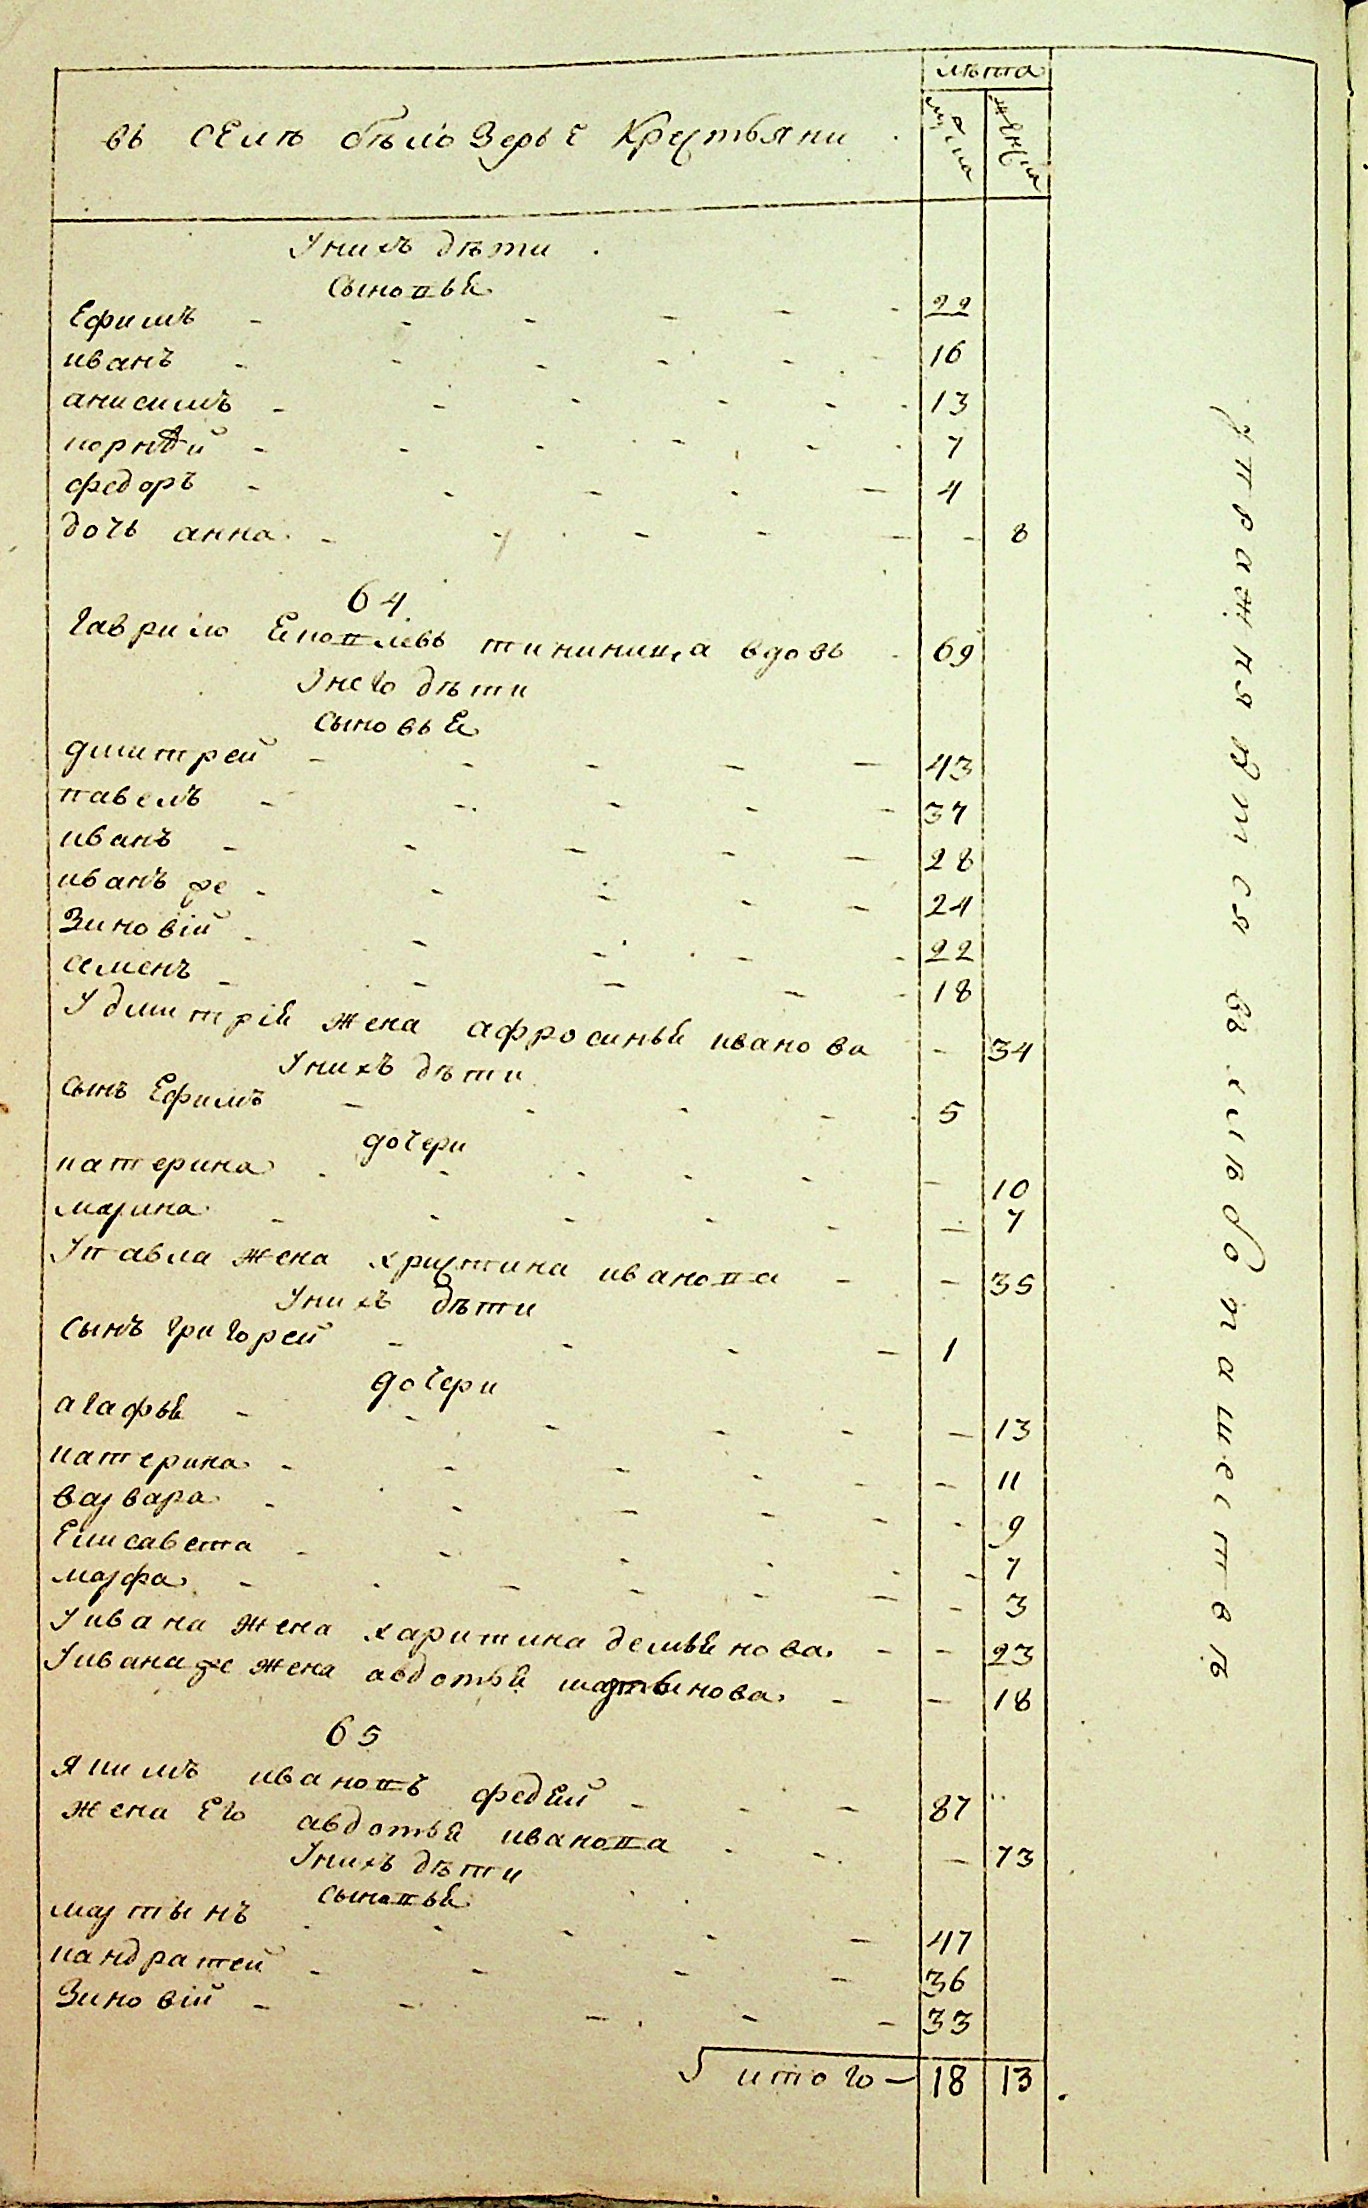 лѣта
въ селѣ бѣло Зерье Крестьяни
мужска женска
У нихъ дѣти
сыновья
Ефимъ - - - - - - 22
иванъ - - - - - - 16
анисимъ - - - - - - 13
корнѣй - - - - - - 7
федоръ - - - - - 4
дочь анна - - - - - - 8
64
гаврило вдовъ - 69
У него дѣти
сыновья
дмитрей - - - - - 43
павелъ - - - - - 37
иванъ - - - - - 28
иванъ же - - - - - 24
Зиновій - - - - - 22
семенъ - - - - - 18
У дмитрія жена афросинья иванова - 34
У нихъ дѣти
сынъ Ефимъ - - - - - 5
дочери
катерина - - - - - - 10
марина - - - - - - 7
У павла жена христина иванова - - 35
У нихъ дѣти
сынъ григорей - - - - 1
дочери
агафья - - - - - - 13
катерина - - - - - - 11
варвара - - - - - - 9
Елисавета - - - - - - 7
марфа - - - - - - - 3
У ивана жена харитина демьянова - - 23
У ивана же жена авдотья мартынова - - 18
65
якимъ ивановъ - - - 87
жена Его авдотья иванова - - - 73
У нихъ дѣти
сыновья
мартынъ - - - - - 47
кандратей - - - - 36
Зиновій - - - - - 33
итого - 18 13
упражняются въ хлѣбопашествѣ